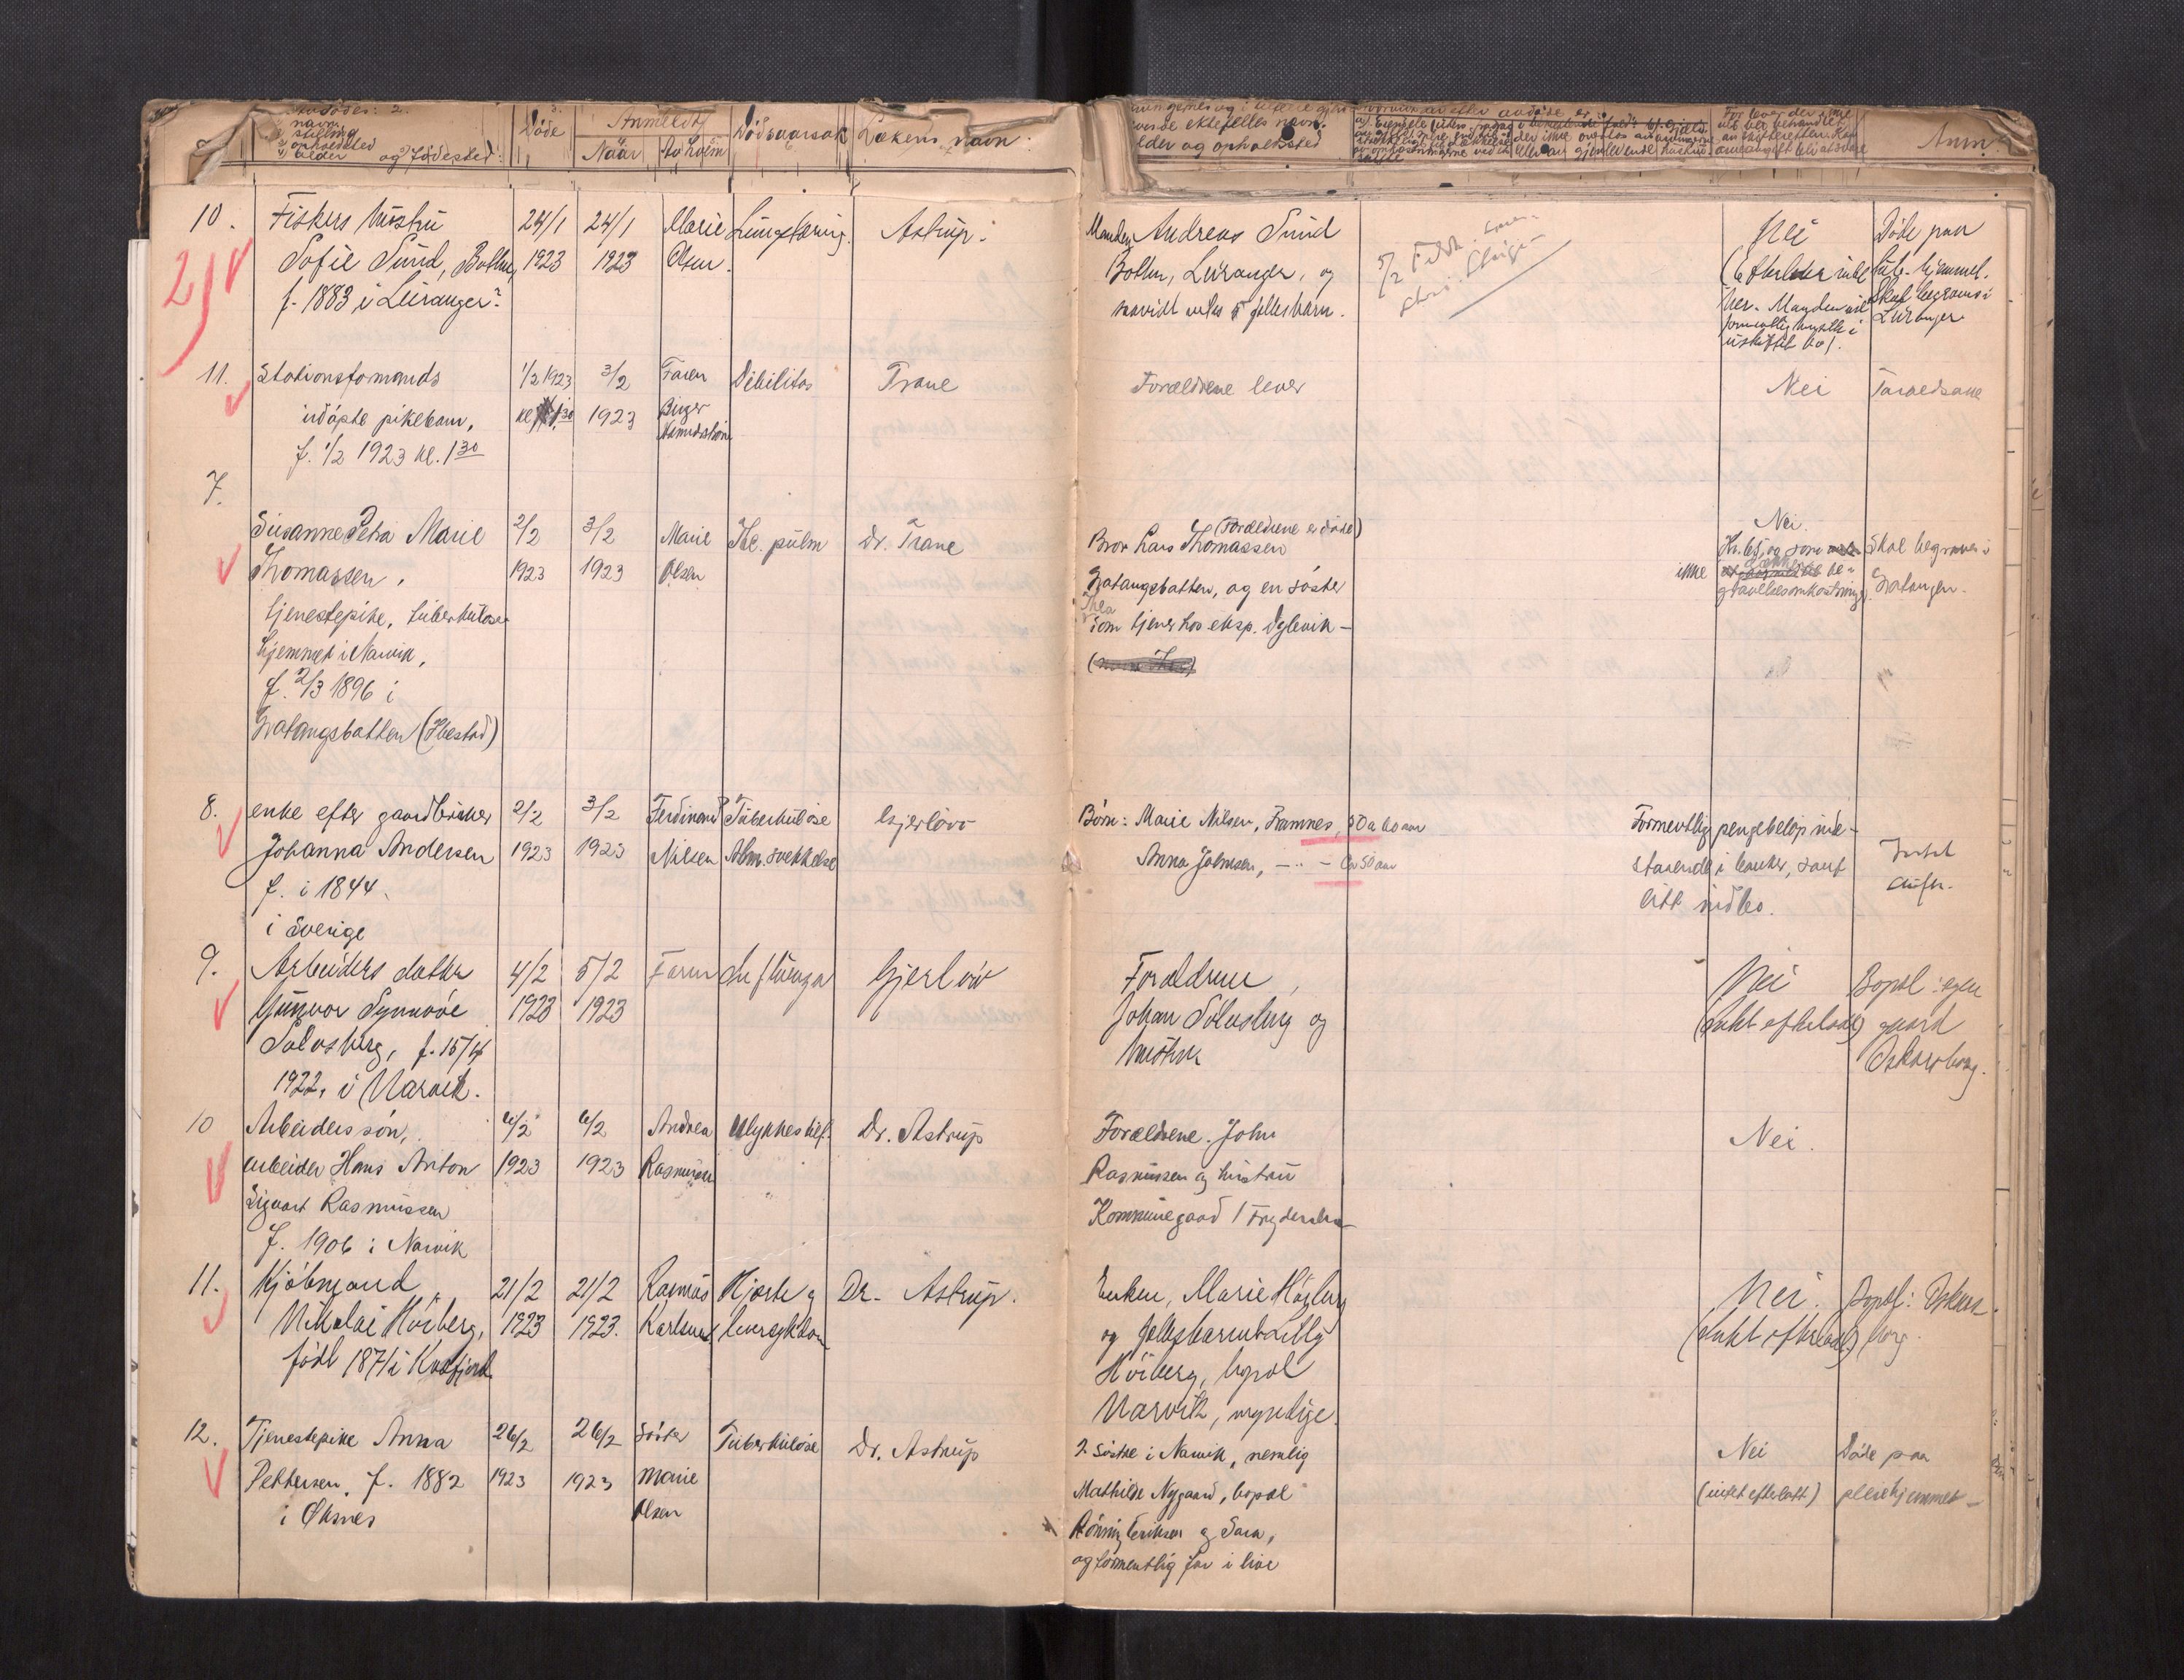 Avdødes: 2.
navn
stilling
opholdssted
alder og fødested:
Døde
Anmeldt
Naar Av hvem
Dødsaarsak
Lækens navn:
ektefelles navn,
alder og opholdssted
Anm.
10. Fiskers hustru 24/1 24/1 Marie Lungetæring. Astrup. Manden Andreas Sund Nei Døde paa
Sofie Sund, Botten, 1923 1923 Olsen. Botten, Leiranger, og (Efterlater intet tub. hjemmet.
f. 1883 i Leiranger. saavidt vites 5 fellesbarn. her. Manden vil Skal begraves i
formentlig hensitte i Leiranger
uskiftet bo).
11. Stationsformands 1/2 1923 3/2 Faren Debilitas Trane Forældrene lever Nei Taraldsvik
udøpte pikebarn, kl 1 30 1923 Birger
f. 1/2 1923 kl. 1 30
7.
Susanne Petra Marie 2/2 3/2 Marie Tbc. pulm Dr. Trane (Forældrene er døde) Nei.
Thomassen, 1923 1923 Olsen Bror Lars Thomassen Skal begraves i
tjenestepike, tuberkulose Gratangsbotten, og en søster ikke Gratangen.
hjemmet i Narvik, Thea som tjener hos eksp. Dylevik begravelsesomkostninger
f. 2/3 1896 i
Gratangsbotten (Ibestad)
8. enke efter gaardbruker 2/2 3/2 Ferdinand Tuberkulose Gjerløv Børn: Marie Nilsen, Framnes, 50 a 60 aar Formentlig pengebeløp inde-
Johanna Andersen 1923 1923 Nilsen Alm. svekkelse Anna Johnsen, —"— ca 50 aar staaende i banker, samt
f. i 1844. litt indbo.
i Sverige
9. Arbeiders datter 4/2 5/2 Faren Influenza Gjerløv Forældrene, Nei Bopæl: egen
Gunvor Synnøve 1923 1923 Johan Solvsberg og (intet efterladt) gaard
Solvsberg, f. 15/4 hustru Oskarsborg.
1922, i Narvik.
10 Arbeiders søn, 6/2 6/2 Andrea Ulykkestilf. Dr. Astrup Forældrene. John Nei.
arbeider Hans Anton 1923 1923 Rasmussen Rasmussen og hustru
Sigvart Rasmussen Kommunegaard 1
f. 1906 i Narvik
11. Kjøbmand 21/2 21/2 Rasmus Hjerte og Dr. Astrup. Enken, Marie Høiberg Nei. Bopæl: Oskars-
Nikolai Høiberg, 1923 1923. Karlsnes leversykdom og fellesbarnet Lilly (intet efterladt) borg.
født 1871 i Kvæfjord Høiberg, bopæl
Narvik, myndige.
12. Tjenestepike Anna 26/2 26/2 Søster Tuberkulose Dr. Astrup 2 søstre i Narvik, nemlig Nei Døde paa
Pettersen, f. 1882 1923 1923 Marie Mathilde Nygaard, bopæl (intet efterlatt) pleiehjemmet
i Øksnes Olsen Rønning Eriksen og Sara,
og formentlig far i live